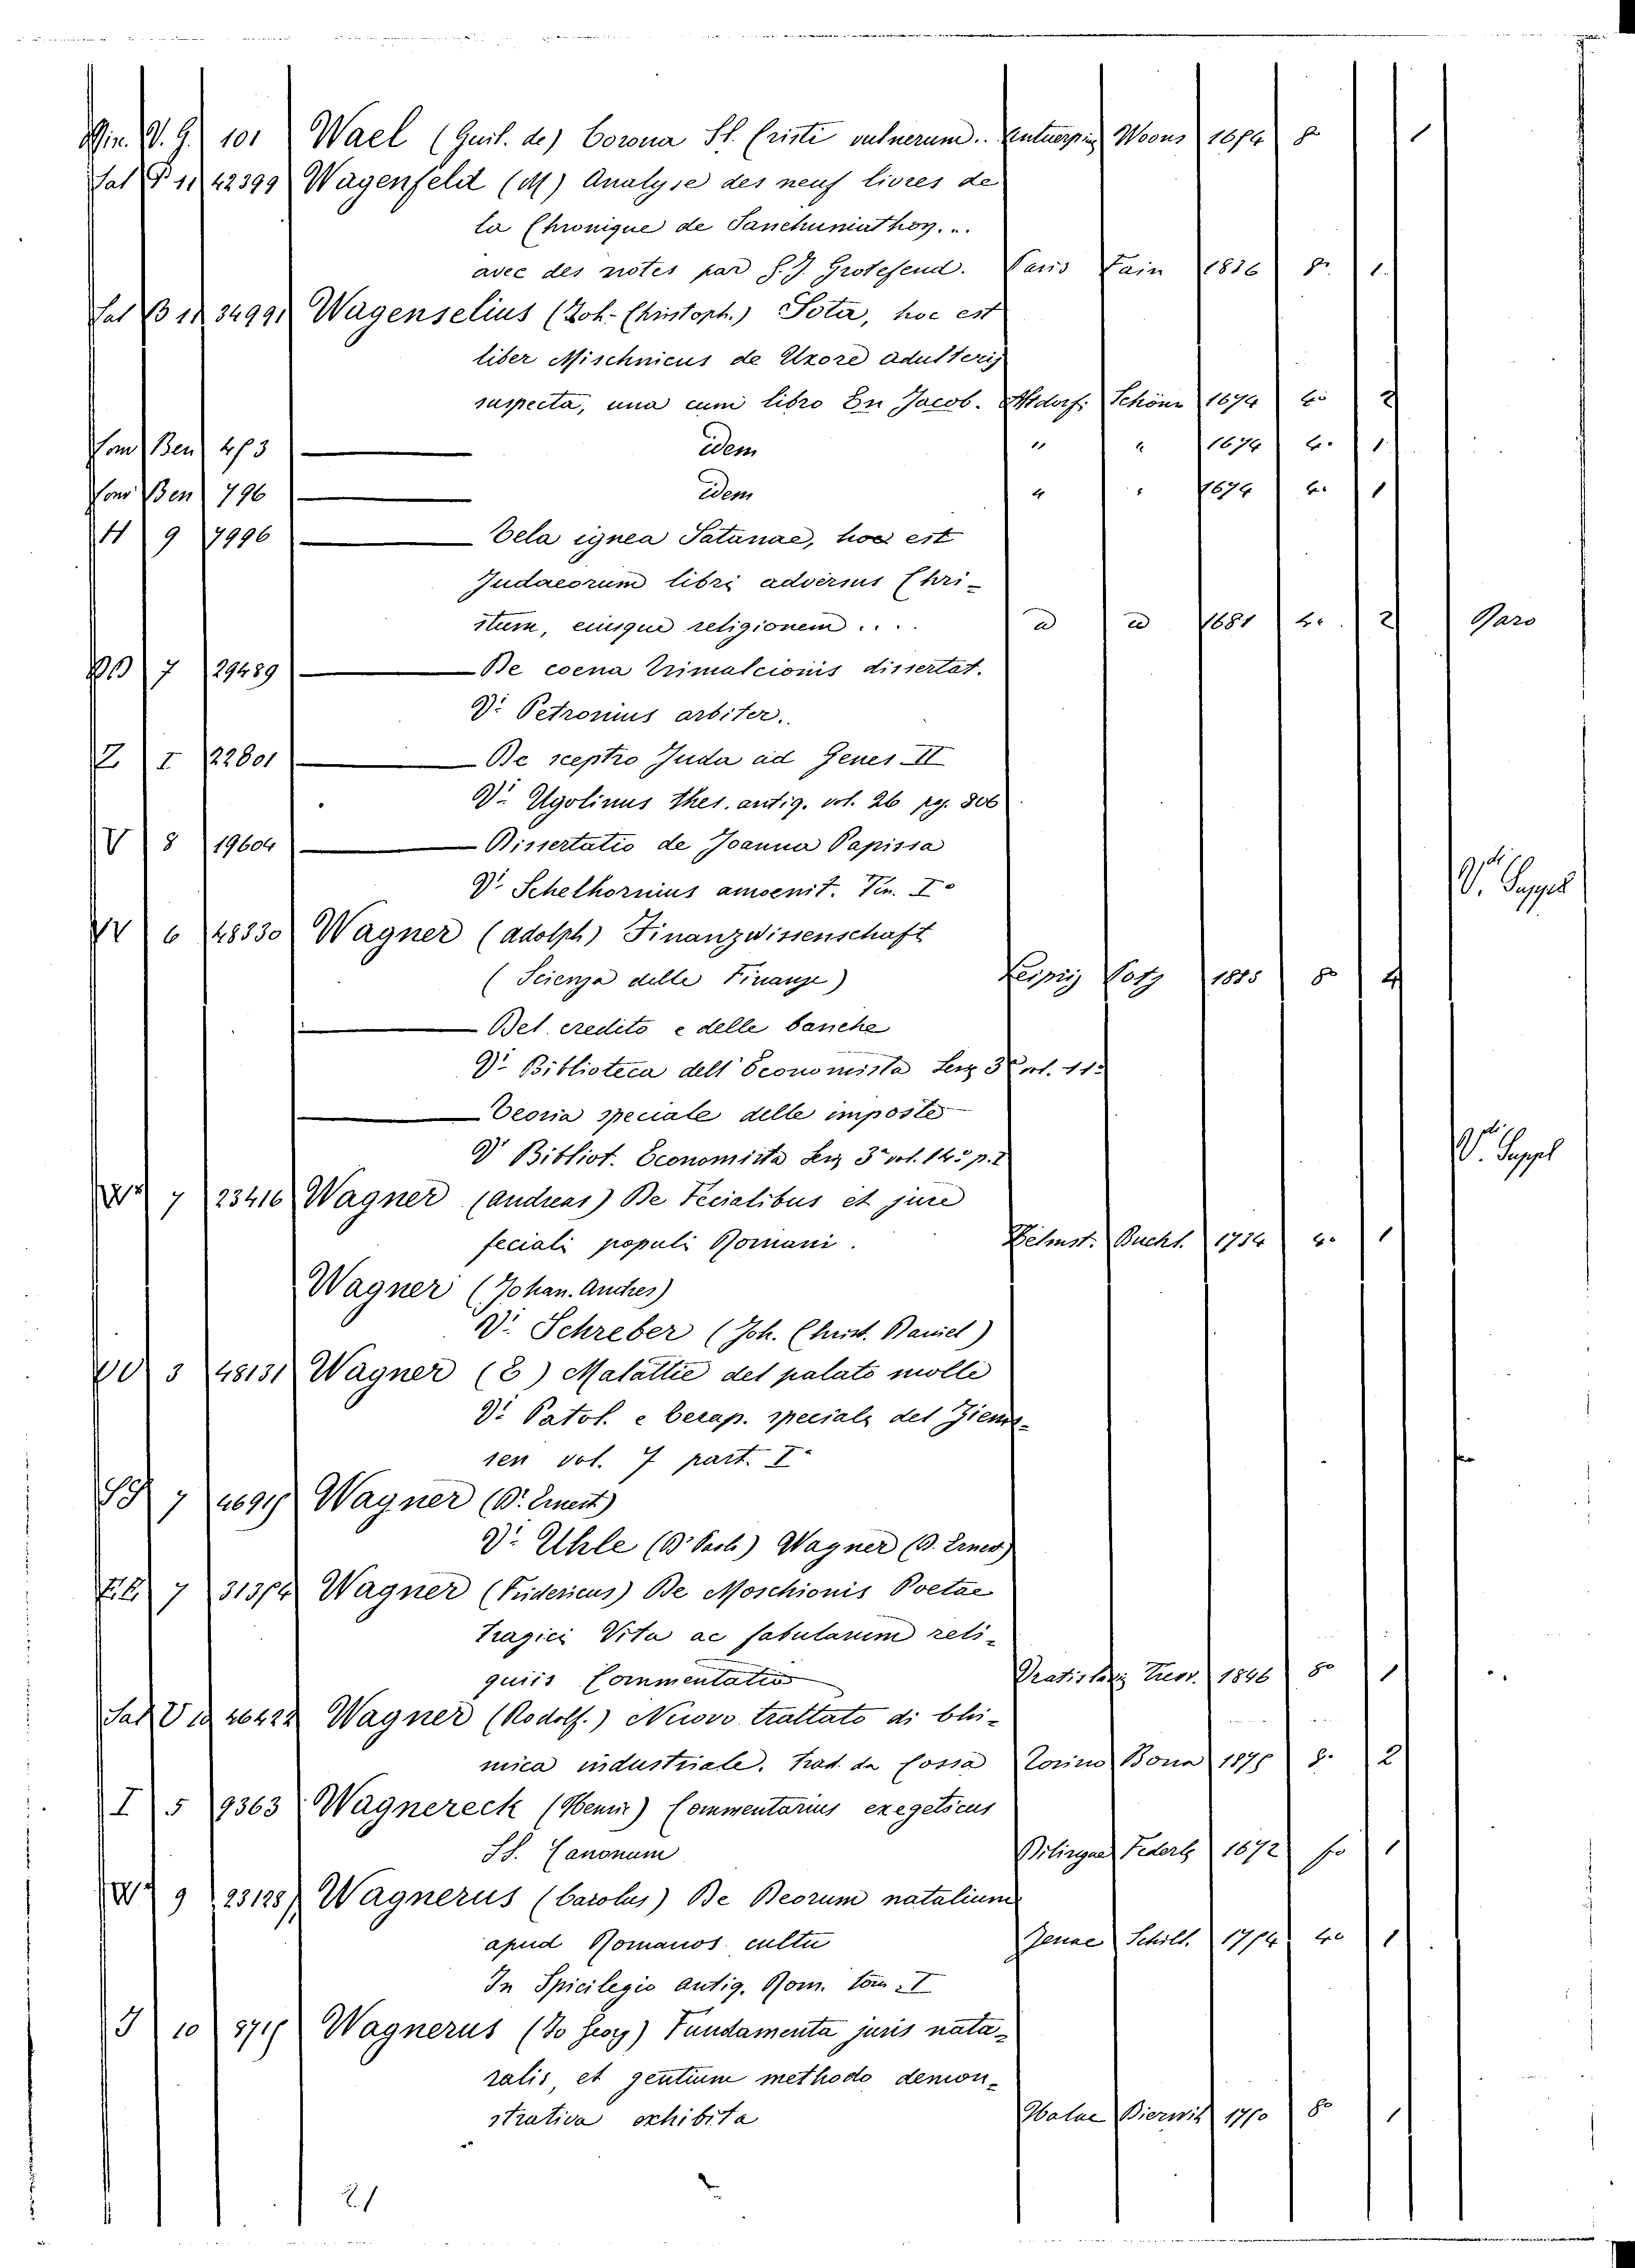 Min. V. G. 101 Wael (Guil. de) Corona St. Cristi vulnerum.. Antuerpiæ Woons 1654 8° 1
Sal P 11 42399 Wagenfeld (M) Analyse des neuf livres de
la Chronique de Sanchuniathon...
avec des notes par G. J. Grotefend. Paris Pain 1836 8° 1.
Sal B 11 34991 Wagenselius (Joh. Christoph.) Sota, hoc est
liber Mischnicus de Uxore adulterij
suspecta, una cum libro En Jacob. Altdorf. Schönn 1674 4° 2
Ben 453 idem " " 1674 4. 1
Ben 796 idem " " 1674 4. 1
H 9 7996 Tela ignea Satanae, hoc est
Judaeorum libri adversus Chri-
stum, eiusque religionem .... a a 1681 4. 2 Raro
7 29489 De coena Trimalcionis dissertat.
V. Petronius arbiter.
Z I 22801 De sceptro Juda ad Genes. II
V. Ugolinus thes. antiq. vol. 26 pg. 306
V 8 19604 Dissertatio de Joanna Papissa
V. Schelhornius amoenit. Tm. I° V. Suppl
6 48330 Wagner (Adolph) Finanzwissenschaft
(Scienza delle Finanze) Leipzig 1885 8° 4
Del credito e delle banche
V. Biblioteca dell' Economista Ser 3 vol. 11°
Teoria speciale delle imposte
V. Bibliot. Economista Ser 3 vol. 14° p. 2 V. Suppl
7 23416 Wagner (Andreas) De Fecialibus et jure
feciali populi Romani. Helmst. Bucht. 1734 4. 1
Wagner (Johan. Andres)
V. Schreber (Joh. Christ. Daniel)
3 48131 Wagner (E) Malattie del palato molle
V. Patol. e terap. speciale del Ziems-
sen vol. 7 part. I°
7 Wagner (D. Ernest)
V. Uhle (D. Paolo) Wagner (D. Ernes)
7 31354 Wagner (Fridericus) De Moschionis Poetae
tragici Vita ac fabularum reli-
quiis Commentatio Vratislaviæ 1846 8° 1
Sal 46422 Wagner (Rodolf.) Nuovo trattato di Chi-
mica industriale. Trad. da Cossa Torino Bona 1875 8. 2
I 5 9363 Wagnereck (Henric) Commentarius exegeticus
SS. Canonum Dilingae Federle 1672 fo 1
9 23128 Wagnerus (Carolus) De Deorum natalium
apud Romanos cultu Jenae Schill. 1754 4° 1
In Spicilegio antiq. Rom. tom. I
J 10 Wagnerus (Jo Georg) Fundamenta juris natu-
ralis, et gentium methodo demon-
strativa exhibita Halae Bierwirt 1750 8° 1
21